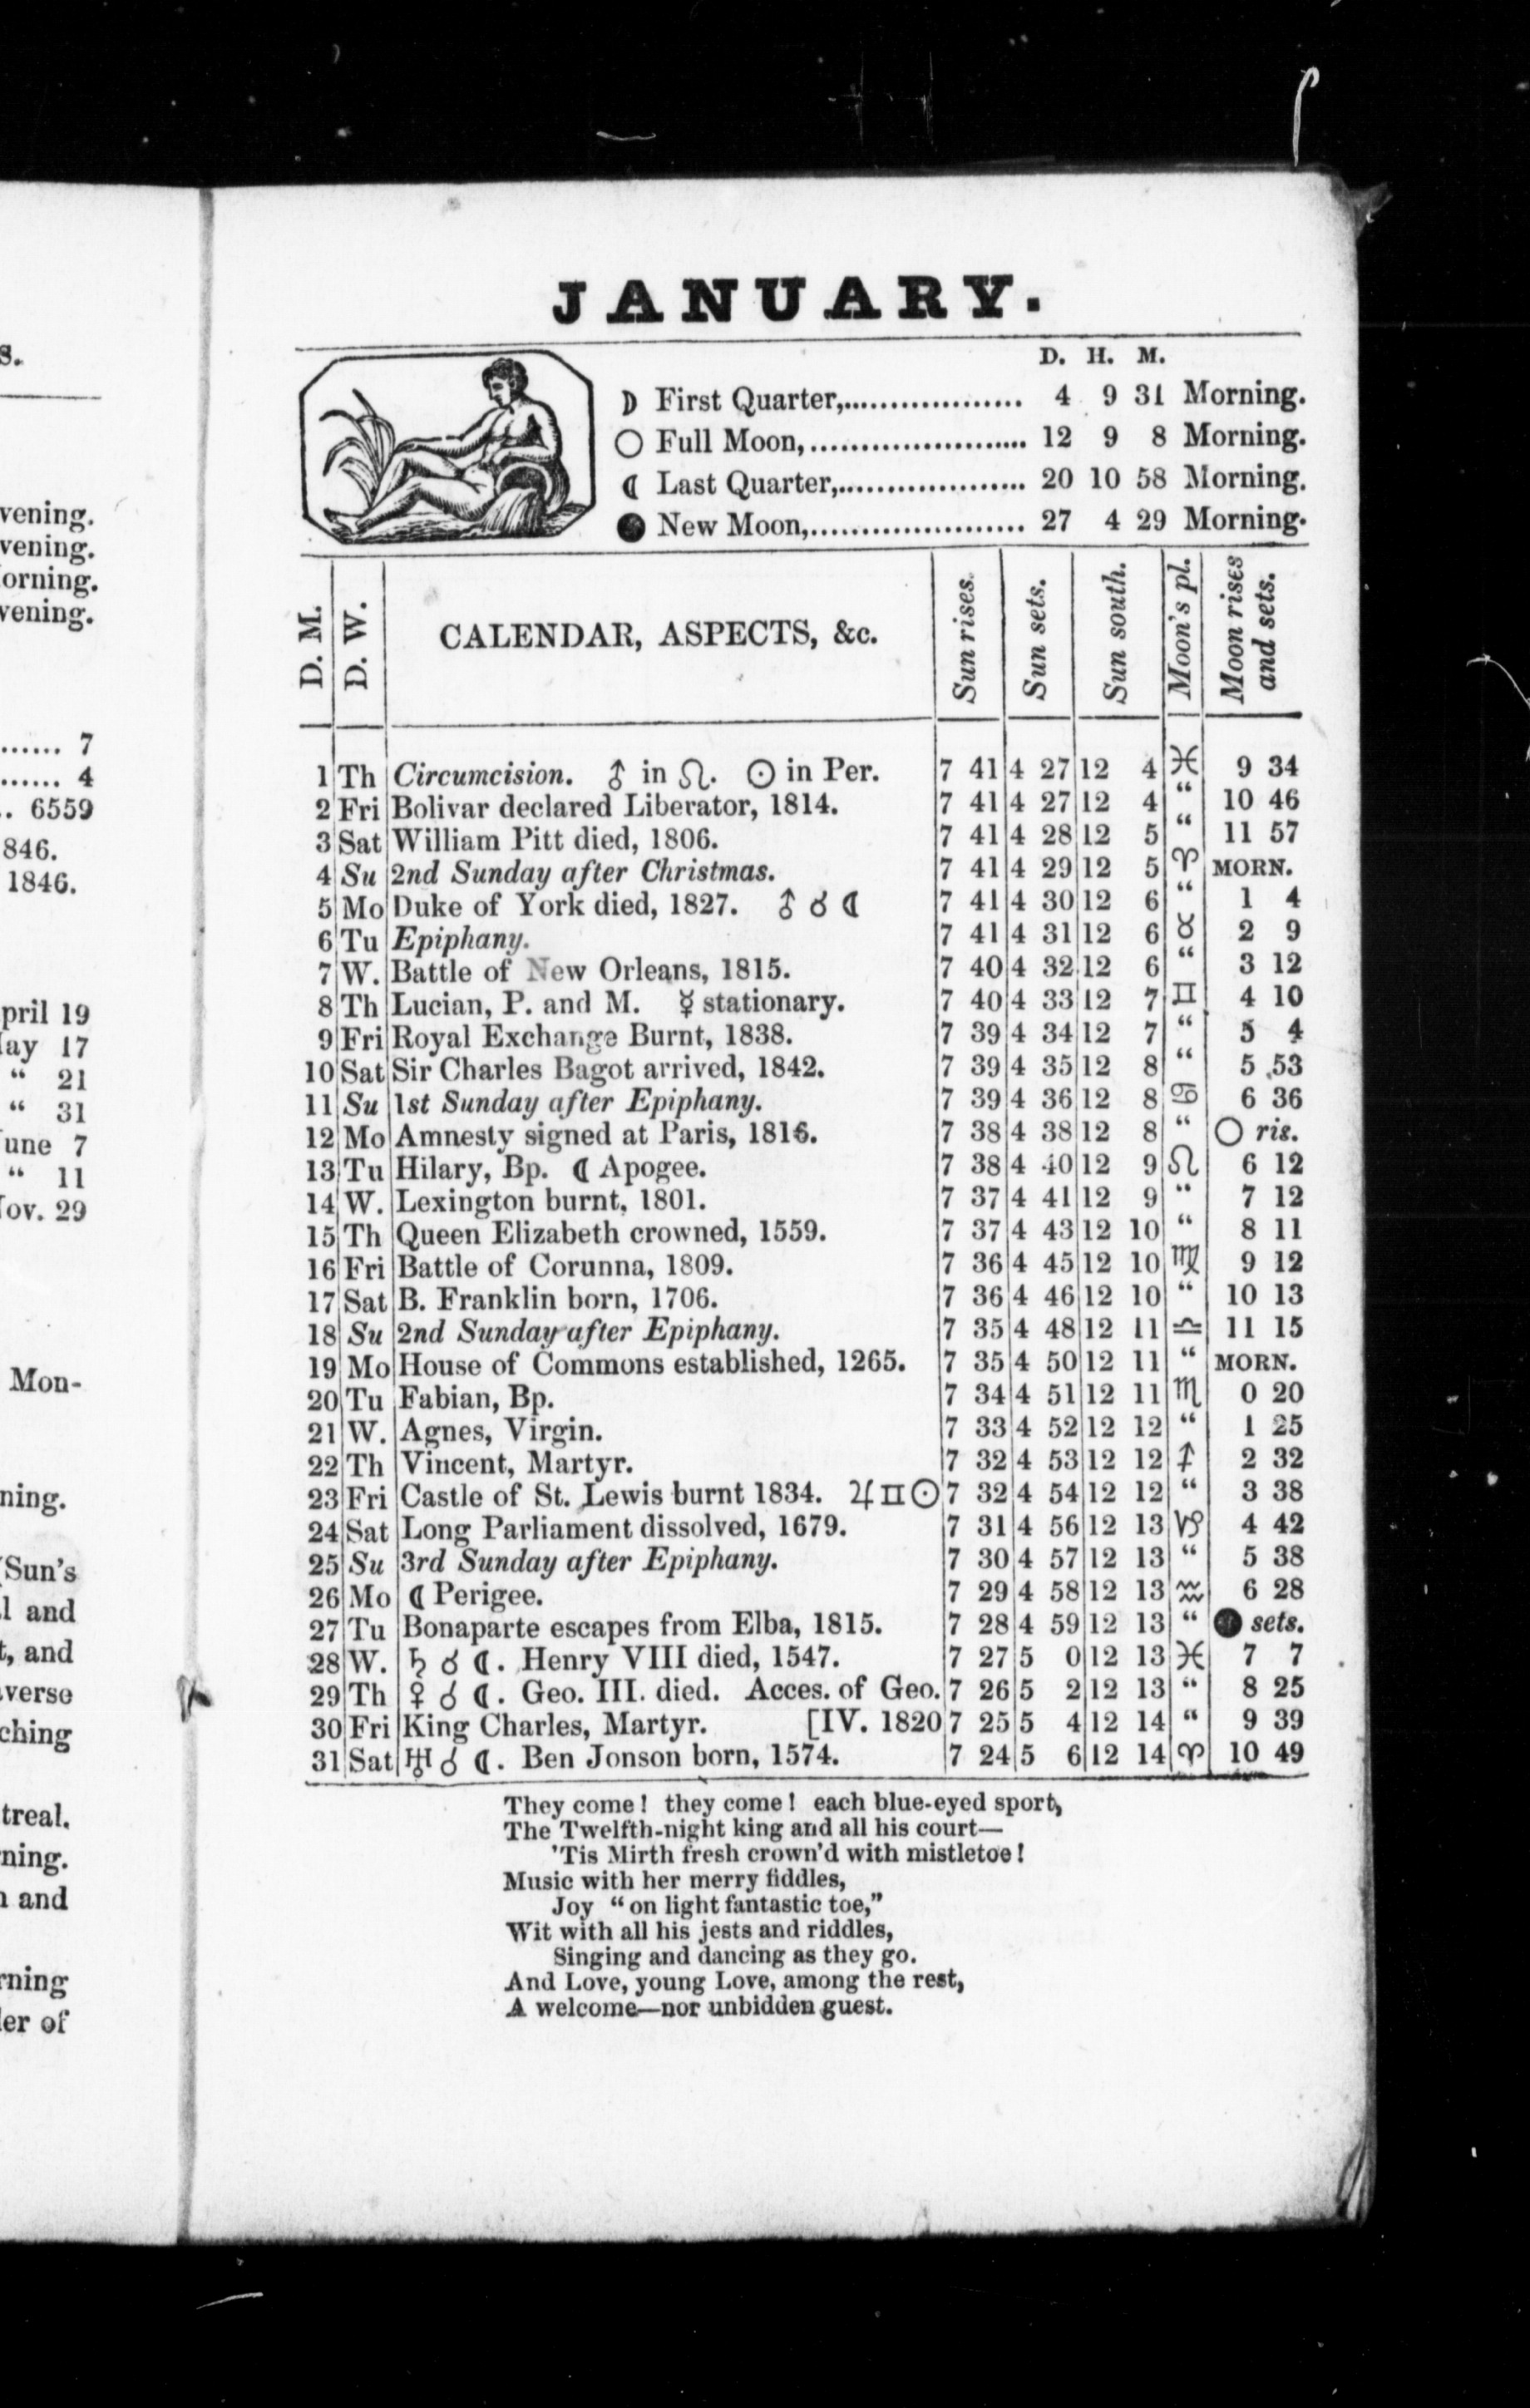 s.
vening.
vening.
orning.
vening.
...... 7
...... 4
.. 6559
846.
1846.
pril 19
ay 17
“ 21
“ 31
une 7
“ 11
ov. 29
Mon-
ning.
(Sun's
l and
t, and
verse
ching
treal.
ning.
n and
rning
er of
JANUARY.
D. H. M.
☽ First Quarter,................... 4 9 31 Morning.
○ Full Moon,........................ 12 9 8 Morning.
☾ Last Quarter,.................... 20 10 58 Morning.
● New Moon,....................... 27 4 29 Morning.
D. M. D. W. CALENDAR, ASPECTS, &c. Sun rises. Sun sets. Sun south. Moon's pl. Moon rises and sets.
1 Th Circumcision. ♂ in ☊. ☉ in Per. 7 41 4 27 12 4 ♓ 9 34
2 Fri Bolivar declared Liberator, 1814. 7 41 4 27 12 4 “ 10 46
3 Sat William Pitt died, 1806. 7 41 4 28 12 5 “ 11 57
4 Su 2nd Sunday after Christmas. 7 41 4 29 12 5 ♈ MORN.
5 Mo Duke of York died, 1827. ♂ ☌ ☾ 7 41 4 30 12 6 “ 1 4
6 Tu Epiphany. 7 41 4 31 12 6 ♉ 2 9
7 W. Battle of New Orleans, 1815. 7 40 4 32 12 6 “ 3 12
8 Th Lucian, P. and M. ☿ stationary. 7 40 4 33 12 7 ♊ 4 10
9 Fri Royal Exchange Burnt, 1838. 7 39 4 34 12 7 “ 5 4
10 Sat Sir Charles Bagot arrived, 1842. 7 39 4 35 12 8 “ 5 53
11 Su 1st Sunday after Epiphany. 7 39 4 36 12 8 ♋ 6 36
12 Mo Amnesty signed at Paris, 1816. 7 38 4 38 12 8 “ ○ ris.
13 Tu Hilary, Bp. ☾ Apogee. 7 38 4 40 12 9 ♌ 6 12
14 W. Lexington burnt, 1801. 7 37 4 41 12 9 “ 7 12
15 Th Queen Elizabeth crowned, 1559. 7 37 4 43 12 10 “ 8 11
16 Fri Battle of Corunna, 1809. 7 36 4 45 12 10 ♍ 9 12
17 Sat B. Franklin born, 1706. 7 36 4 46 12 10 “ 10 13
18 Su 2nd Sunday after Epiphany. 7 35 4 48 12 11 ♎ 11 15
19 Mo House of Commons established, 1265. 7 35 4 50 12 11 “ MORN.
20 Tu Fabian, Bp. 7 34 4 51 12 11 ♏ 0 20
21 W. Agnes, Virgin. 7 33 4 52 12 12 “ 1 25
22 Th Vincent, Martyr. 7 32 4 53 12 12 ♐ 2 32
23 Fri Castle of St. Lewis burnt 1834. ♃ ♊ ☉ 7 32 4 54 12 12 “ 3 38
24 Sat Long Parliament dissolved, 1679. 7 31 4 56 12 13 ♑ 4 42
25 Su 3rd Sunday after Epiphany. 7 30 4 57 12 13 “ 5 38
26 Mo ☾ Perigee. 7 29 4 58 12 13 ♒ 6 28
27 Tu Bonaparte escapes from Elba, 1815. 7 28 4 59 12 13 “ ● sets.
28 W. ♄ ☌ ☾. Henry VIII died, 1547. 7 27 5 0 12 13 ♓ 7 7
29 Th ♀ ☌ ☾. Geo. III. died. Acces. of Geo. 7 26 5 2 12 13 “ 8 25
30 Fri King Charles, Martyr. [IV. 1820 7 25 5 4 12 14 “ 9 39
31 Sat ♅ ☌ ☾. Ben Jonson born, 1574. 7 24 5 6 12 14 ♈ 10 49
They come! they come! each blue-eyed sport,
The Twelfth-night king and all his court—
'Tis Mirth fresh crown'd with mistletoe!
Music with her merry fiddles,
Joy “on light fantastic toe,”
Wit with all his jests and riddles,
Singing and dancing as they go.
And Love, young Love, among the rest,
A welcome—nor unbidden guest.